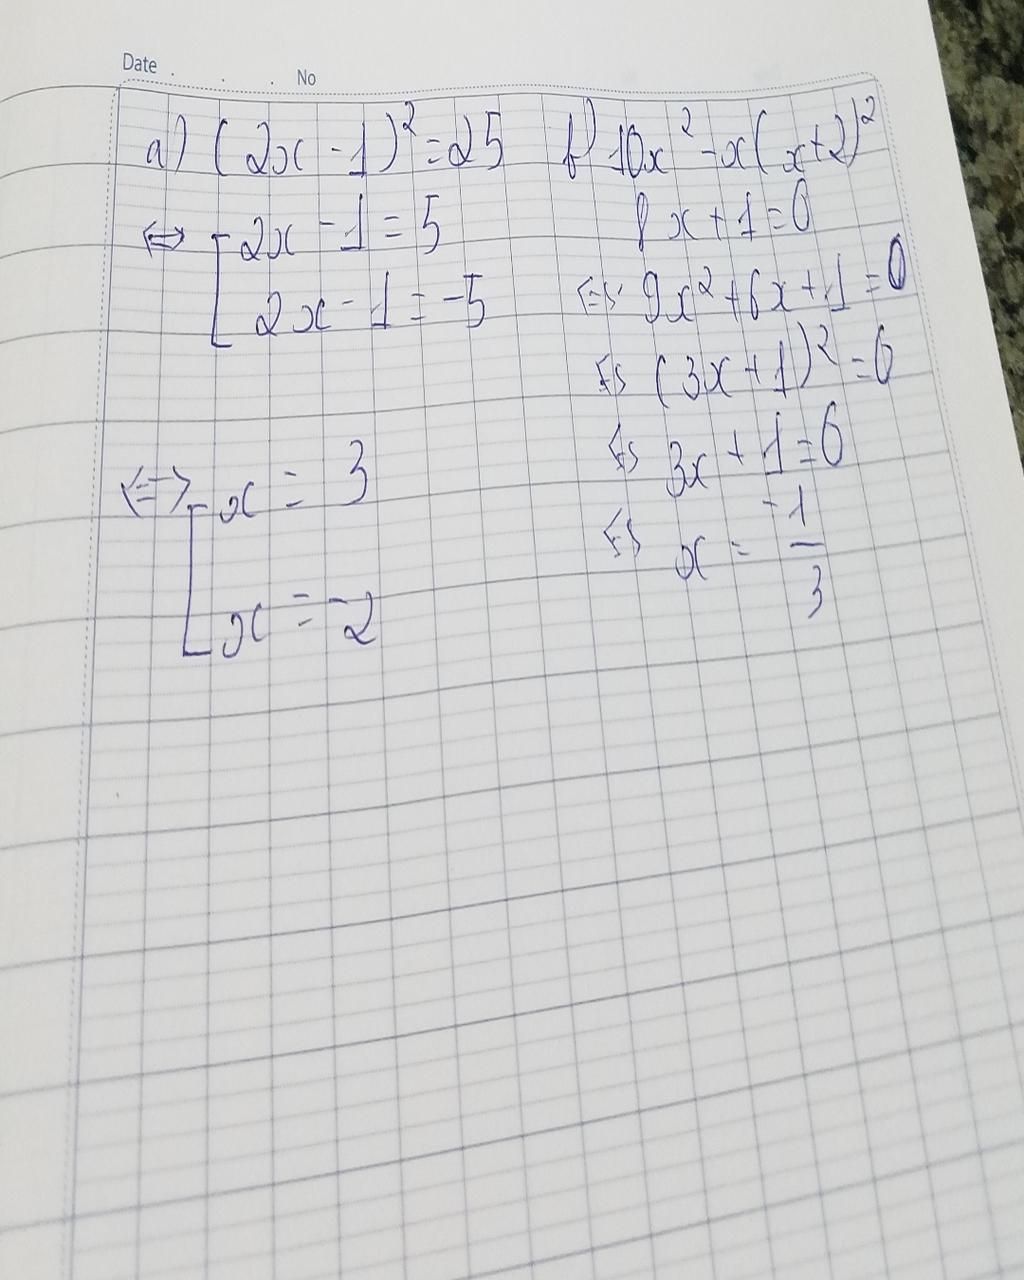 Date . . . No
a) (2x - 1)² = 25
⇔ [ 2x - 1 = 5
2x - 1 = -5
⇔ [ x = 3
x = -2
b) 10x² - x(x+2)²
8x + 1 = 0
⇔ 9x² + 6x + 1 = 0
⇔ (3x + 1)² = 0
⇔ 3x + 1 = 0
⇔ x = -1/3